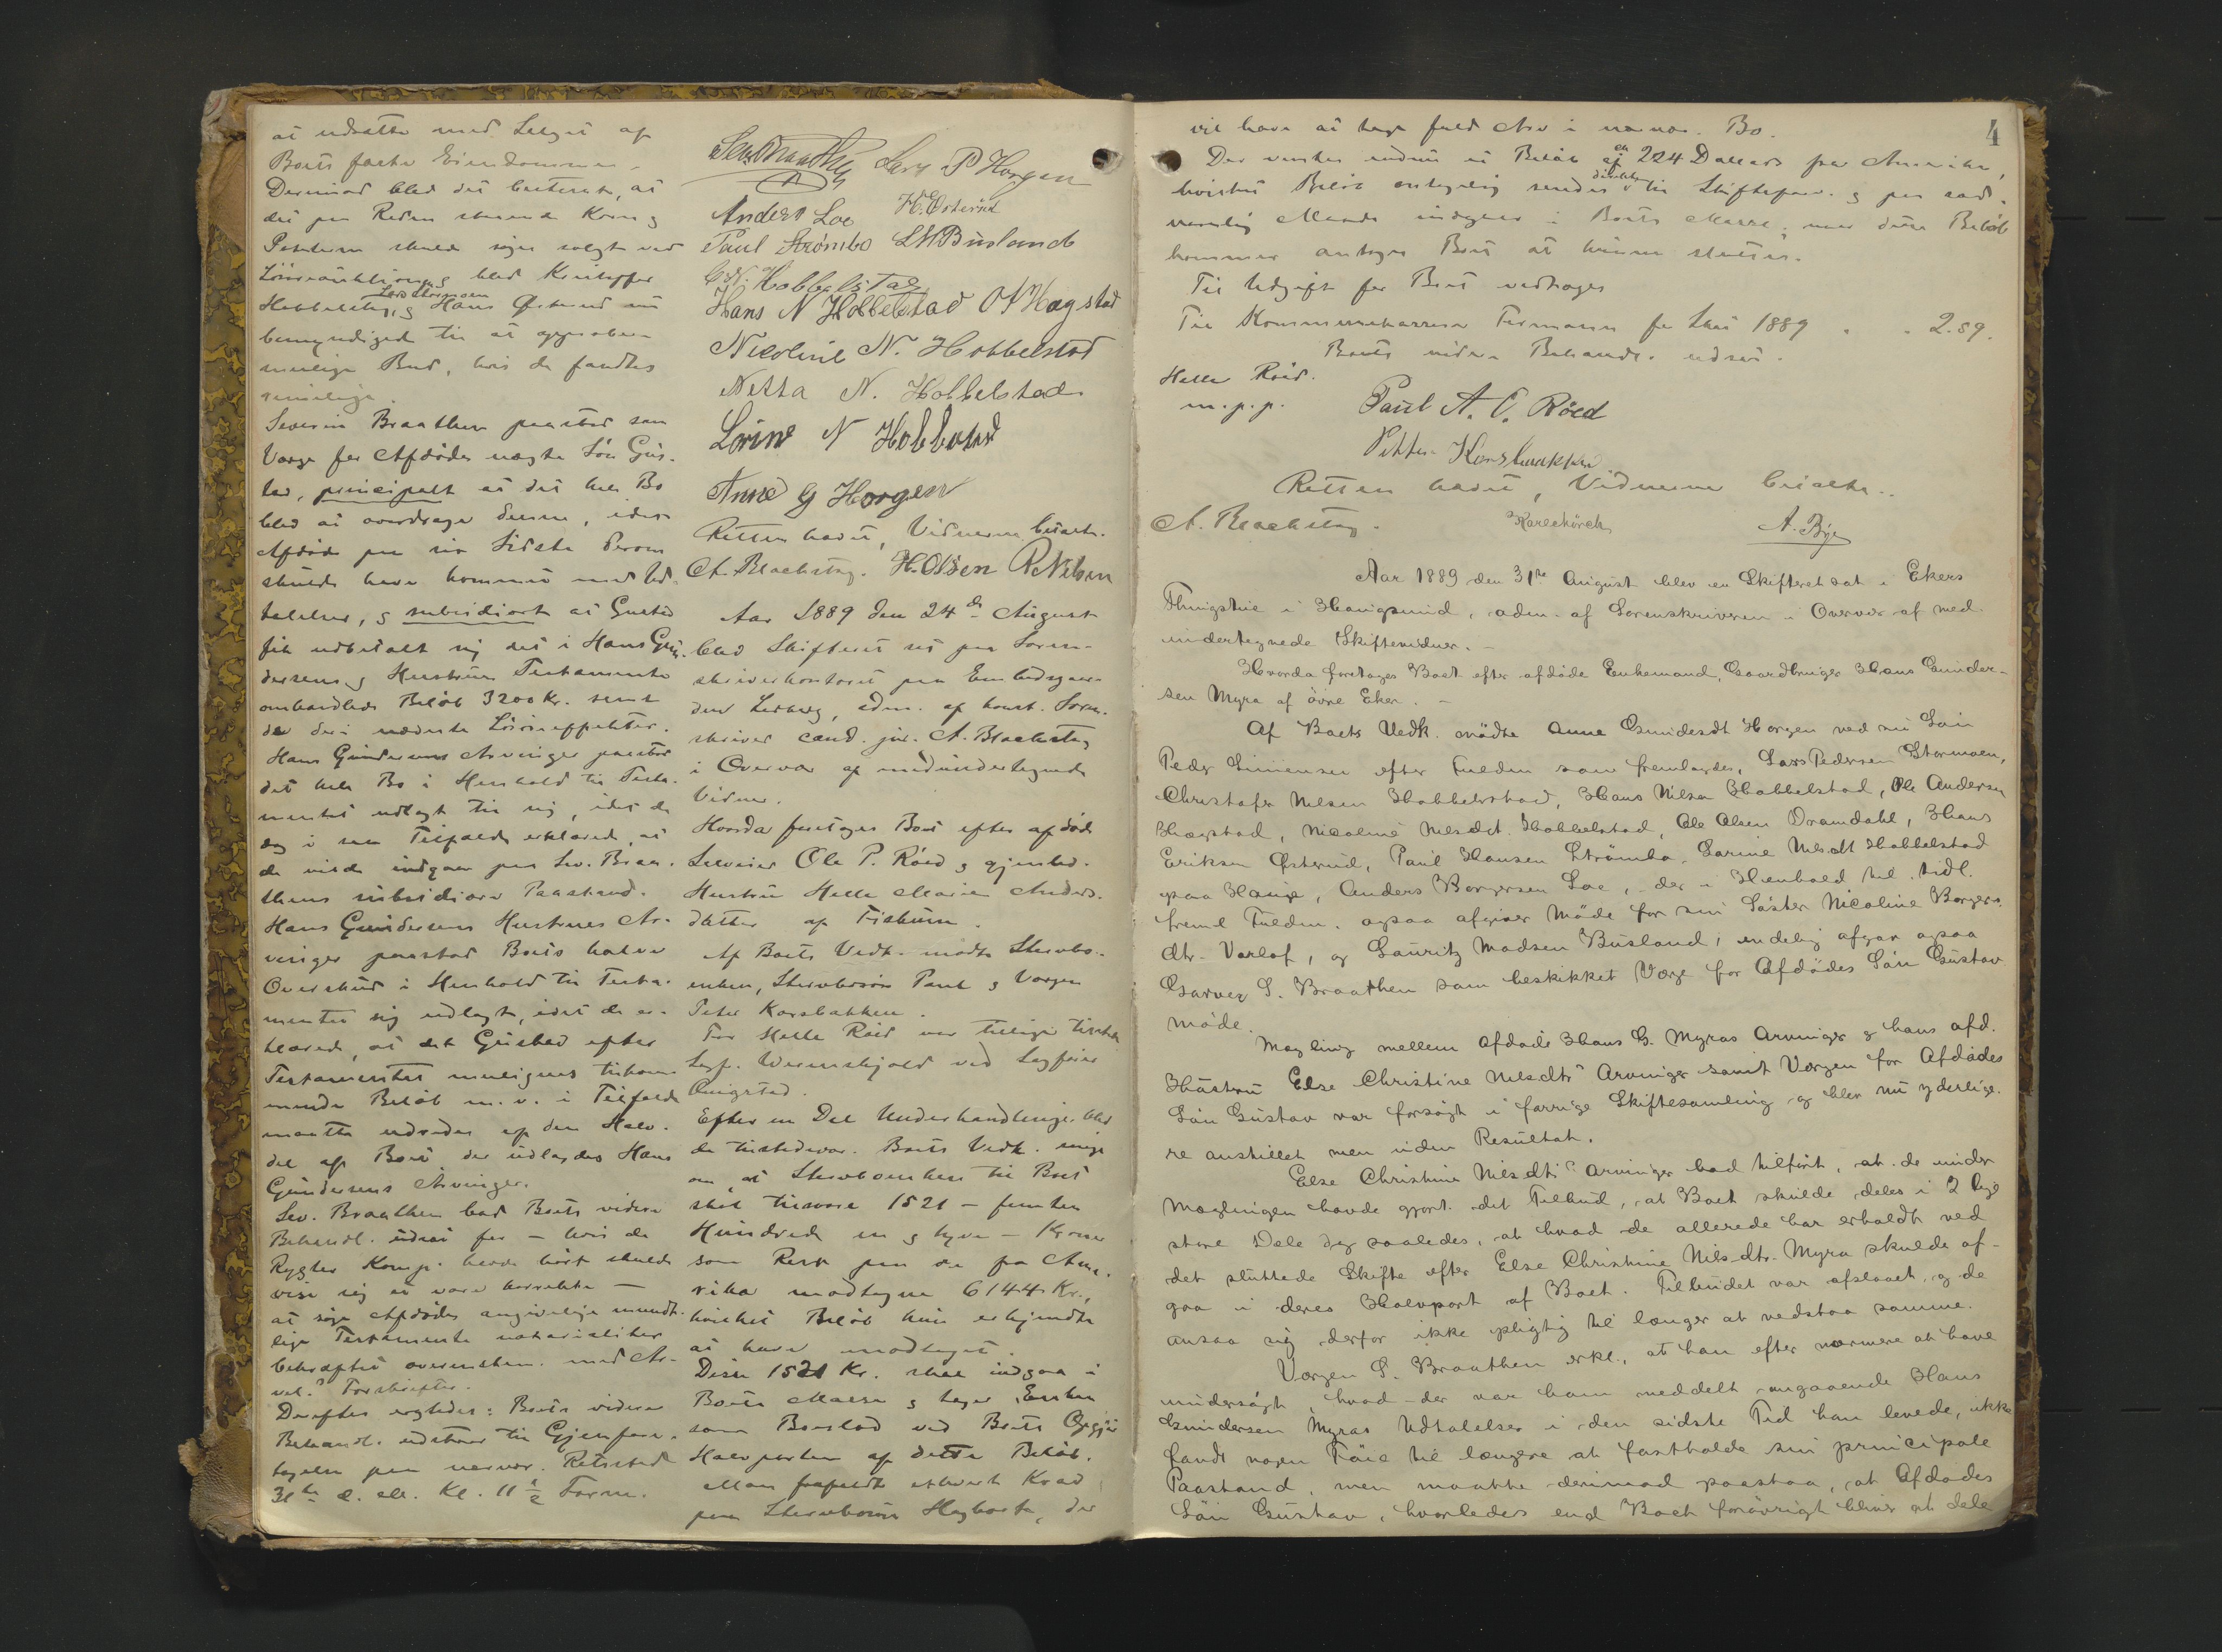 at udsætte med Salget af
Boets faste Eiendommen.
Derimod blev det besluttet, at
det paa Roden staaende Korn og
Poteterne skulde søges solgt ved
Løsøreauktion, og blev Kristoffer
Hobbelstad, Lars Stormoen og Hans Østerud
bemyndiget til at approbere
mulige Bud, hvis de fandtes
rimelige.
Severin Braathen paastod som
Værge for Afdødes uægte Søn Gus-
tav, principalt at det hele Bo
blev at overdrage denne, idet
Afdøde paa sit Sidste derom
skulde have kommet med Ud-
talelser, og subsidiært at Gustav
fik udbetalt sig det i Hans Gun-
dersens og Hustrues Testamente
omhandlede Beløb 3200 Kr. samt
de deri nævnte Løsøreeffekter.
Hans Gundersens Arvinger paastod
det hele Bo i Henhold til Testa-
mentet udlagt til sig, idet de
dog i saa Tilfælde erklærede, at
de vilde indgaa paa Sev. Braa-
thens subsidiære Paastand.
Hans Gundersens Hustrues Ar-
vinger paastod Boets halve
Overskud i Henhold til Testa-
mentet sig udlagt, idet de er-
klærede, at det Gustav efter
Testamentet muligens tilkom-
mende Beløb m. v. i Tilfælde
maatte udredes af den Halv-
del af Boet, der udlagdes Hans
Gundersens Arvinger.
Sev. Braathen bad Boets videre
Behandl. udsat for – hvis de
Rygter Komp. havde hørt skulde
vise sig at være korrekte –
at søge Afdødes angivelige mundt-
lige Testamente notarialiter
bekræftet overensstem. med Ar-
vel.s Forskrifter.
Derefter afgjordes: Boets videre
Behandl. udsættes til Gjenfore-
tagelse paa nærvær. Retssted
31te d. M. Kl. 11 ½ Form.
Sev. Braathen Lars P Horgen
Anders Loe H. Østerud
Paul Strømbo L M Busland
C. N. Hobbelstad
Hans N Hobbelstad O A Hagstad
Nicoline N. Hobbelstad
Netta N. Hobbelstad
Lorine N Hobbelstad
Anne G Horgen
Retten hævet, Vidnerne betalte.
A. Blachstag. H. Olsen P. Nilsen
Aar 1889 den 24de August
blev Skifteret sat paa Soren-
skriverkontoret paa Embedsgaar-
den Ledberg, adm. af const. Soren-
skriver cand. jur. A. Blachstag
i Overvær af medundertegnede
Vidner.
Hvorda foretoges Boet efter afdøde
Selveier Ole P. Röed og gjenlev.
Hustru Helle Marie Anders-
datter af Fiskum.
Af Boets Vedk. mødte Stervbo-
enken, Stervbosøn Paul og Værgen
Peter Korsbakken.
For Helle Röed var tillige tilstede
Sagf. Wermskjold ved Sagfører
Omgstad.
Efter en Del Underhandlinger blev
de tilstedevær. Boets Vedk. enige
om, at Stervboenken til Boet
skal tilsvare 1521 – femten
Hundrede en og tyve – Kroner
som Rest paa de fra Ame-
rika modtagne 6144 Kr.,
hvilket Beløb hun erkjendte
at have modtaget.
Disse 1521 Kr. skal indgaa i
Boets Masse og tager Enken
som Boeslod ved Boets Opgjør
Halvparten af dette Beløb.
Man frafaldt ethvert Krav
paa Stervbosøn Hagbart, der
4
vil have at tage fuld Arv i nærvær. Bo.
Der ventes endnu et Beløb af ca 224 Dollars fra Amerika,
hvilket Beløb antagelig sendes direkte til Skifteforv. og paa sæd-
vanlig Maade indgaar i Boets Masse; naar dette Beløb
kommer antages Boet at kunne sluttes.
Til Udgift for Boet vedtoges
Til Kommunekasserer Firmann for Skat 1889 . . 2.89.
Boets videre Behandl. udsat.
Helle Röed.
m. p. p. Paul A. O. Röed
Petter Korsbakken
Retten hævet, Vidnerne betalte.
A. Blachstag. A. Bye
Aar 1889 den 31te August blev en Skifteret sat i Ekers
Thingstue i Haugsund, adm. af Sorenskriveren i Overvær af med-
undertegnede Skiftevidner. –
Hvorda foretages Boet efter afdøde Enkemand, Gaardbruger Hans Gunder-
sen Myra af øvre Eker. –
Af Boets Vedk. mødte Anne Gundersdt Horgen ved sin Søn
Peder Simensen efter Fuldm. som fremlagdes, Lars Pedersen Stormoen,
Christofer Nilsen Hobbelstad, Hans Nilsen Hobbelstad, Ole Andersen
Hagstad, Nicoline Nilsdt. Hobbelstad, Ole Olsen Dramdahl, Hans
Eriksen Østerud, Paul Hansen Strømbo, Lorine Nilsdt Hobbelstad
paa Hauge, Anders Borgersen Loe, der i Henhold til tidl.
freml. Fuldm. ogsaa afgiver Møde for sin Søster Nicoline Borgers-
dtr. Varlof, og Lauritz Madsen Busland; endelig afgav ogsaa
Garver S. Braathen som beskikket Værge for Afdødes Søn Gustav
Møde.
Mægling mellem afdøde Hans G. Myras Arvinger og hans afd.
Hustru Else Christine Nilsdtrs Arvinger samt Værgen for Afdødes
Søn Gustav var forsøgt i forrige Skiftesamling og blev nu yderlige-
re anstillet men uden Resultat.
Else Christine Nilsdtrs Arvinger bad tilført, at de under
Mæglingen havde gjort det Tilbud, at Boet skulde deles i 2 lige
store Dele dog saaledes, at hvad de allerede har erholdt ved
det sluttede Skifte efter Else Christine Nilsdtr. Myra skulde af-
gaa i deres Halvpart af Boet. Tilbudet var afslaaet, og de
ansaa sig derfor ikke pligtig til længer at vedstaa samme.
Værgen S. Braathen erkl., at han efter nærmere at have
undersøgt, hvad der var ham meddelt angaaende Hans
Gundersen Myras Udtalelser i den sidste Tid han levede, ikke
fandt nogen Føie til længere at fastholde sin principale
Paastand, men maatte derimod paastaa, at Afdødes
Søn Gustav, hvorledes end Boet forøvrigt bliver at dele